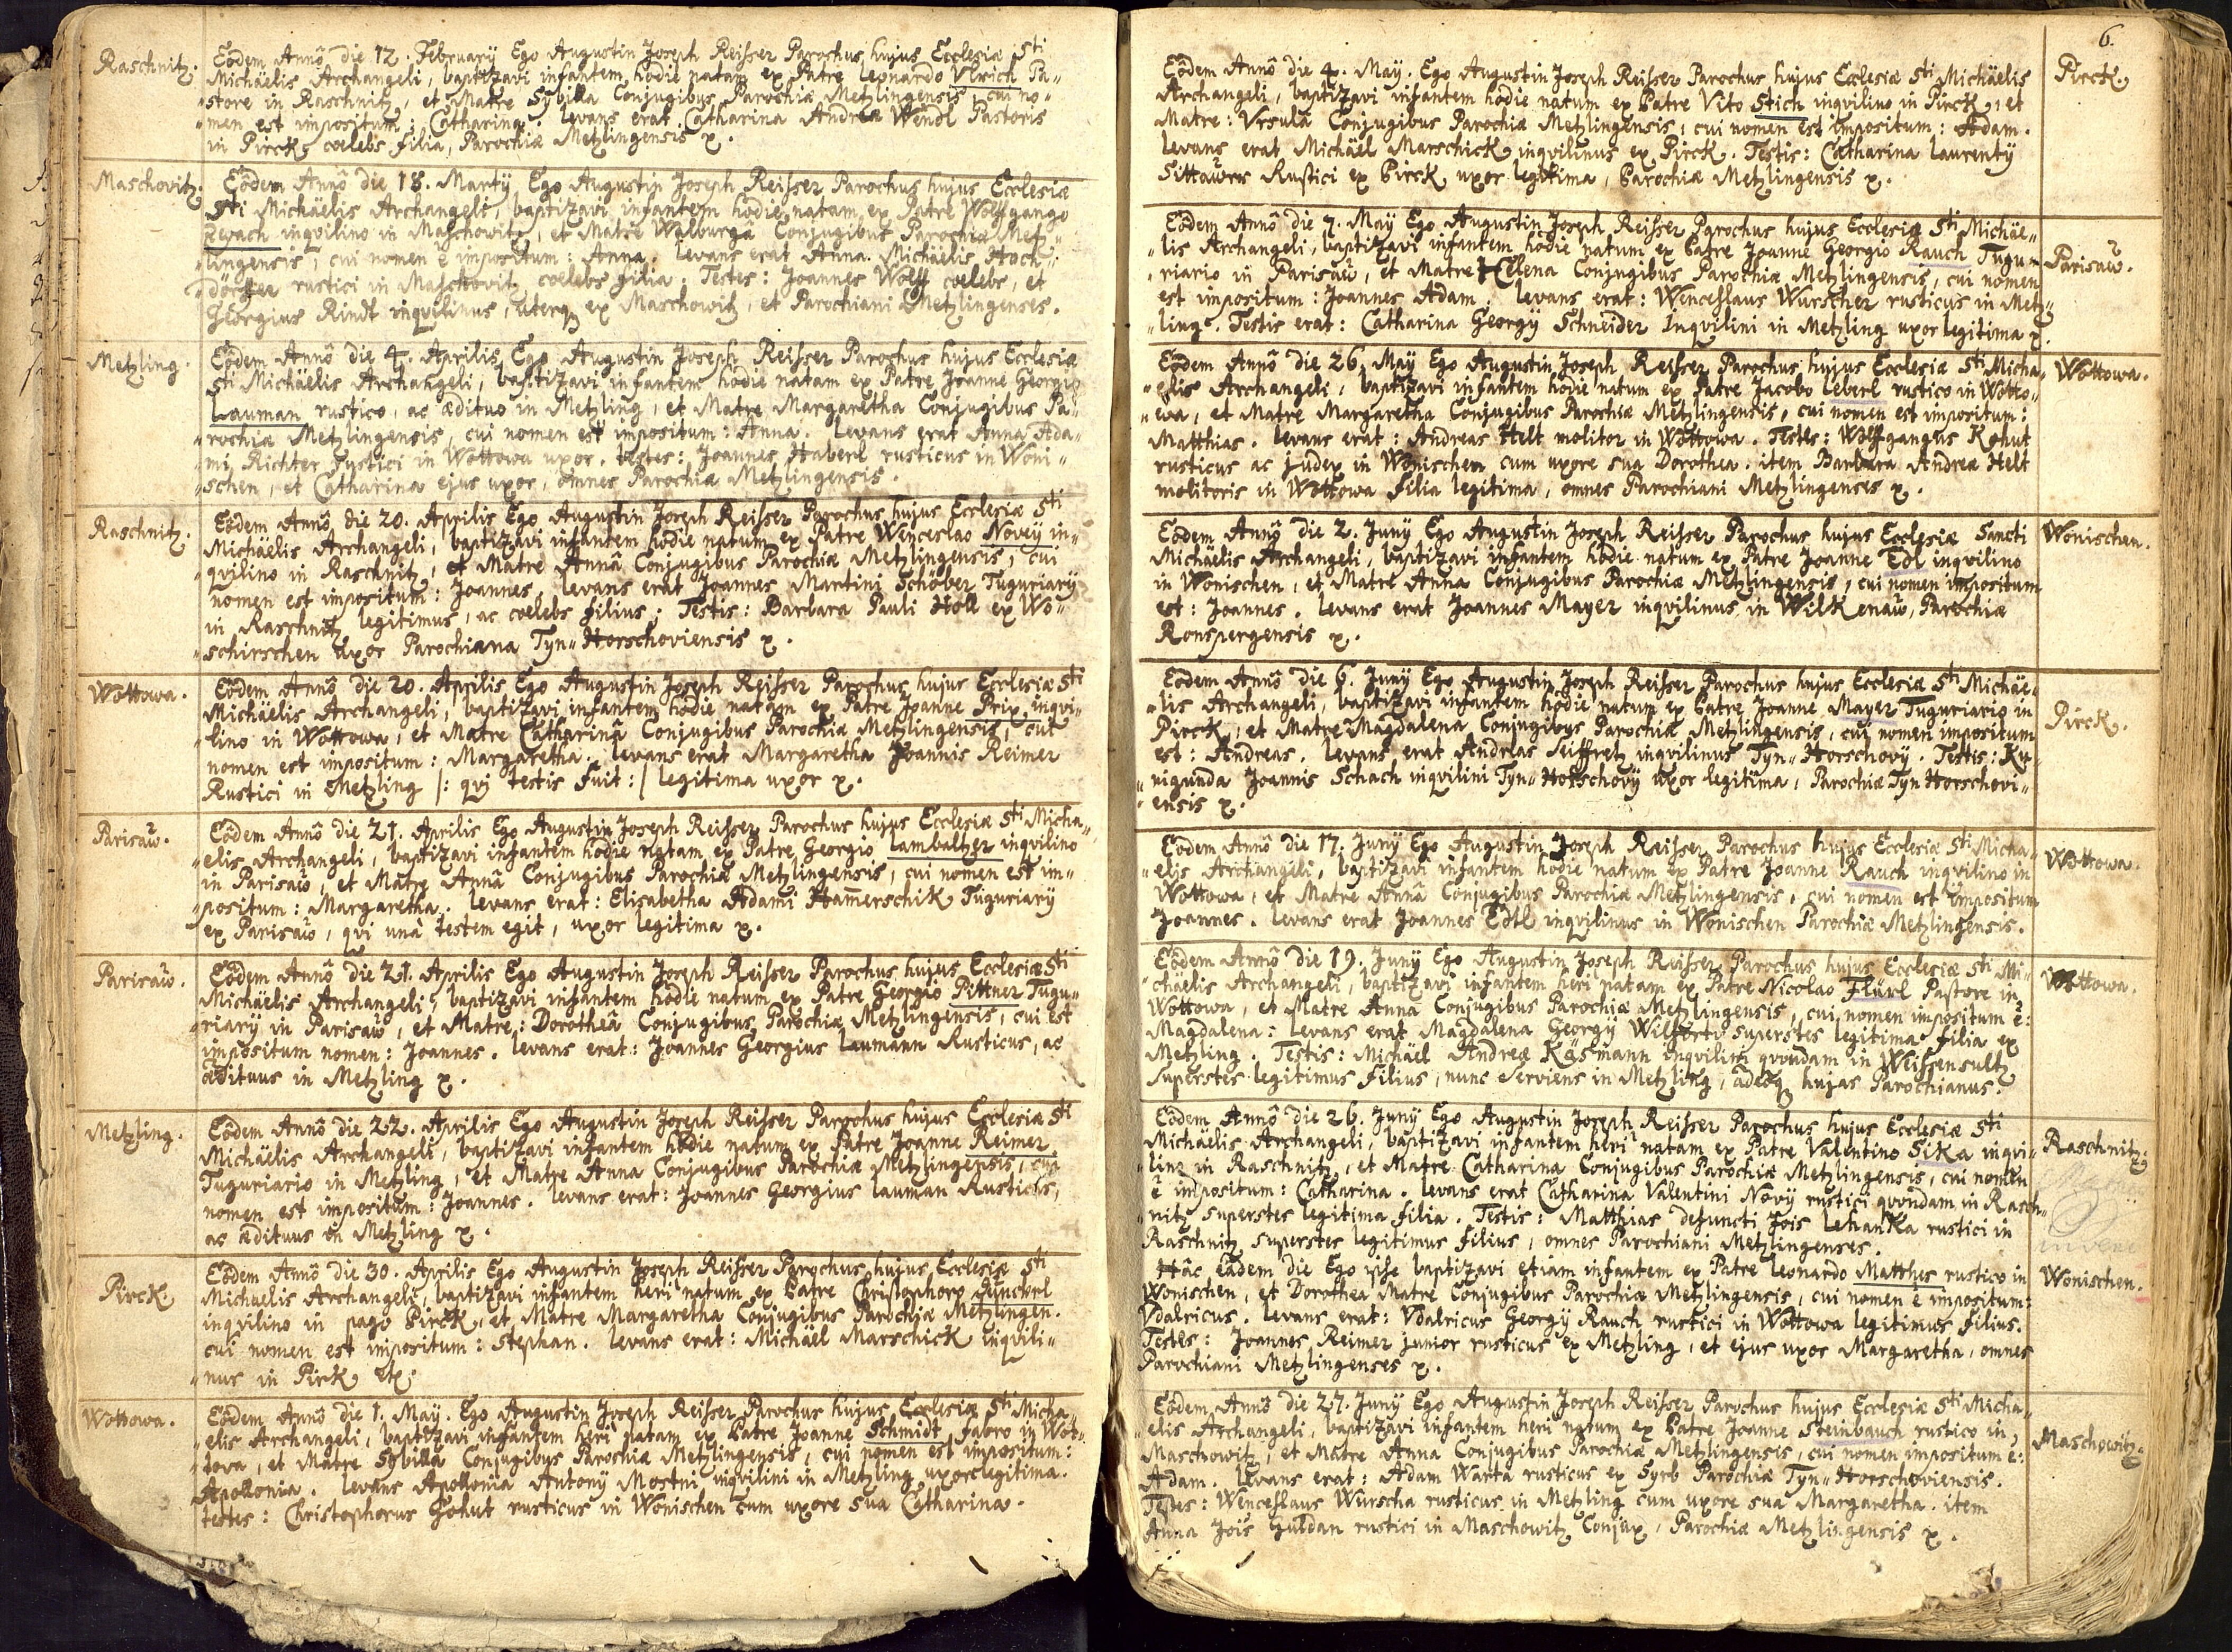 Raschnitz.
Eôdem Annô die 12. Februarÿ Ego Augustin Joseph Reisser Parochus hujus Ecclesiæ Sti
Michäelis Archangeli, baptizavi infantem hodie natam ex Patre Leonardo Vlrich Pa"
"store in Raschnitz, et Matre Sybilla Conjugibus Parochiæ Metzlingensis, cui no"
"men est impositum: Catharina. levans erat Catharina Andreæ Wendl Pastoris
in Pirck, cœlebs filia, Parochiæ Metzlingensis ꝛ.
Maschovitz.
Eôdem Annô die 18. Martÿ Ego Augustin Joseph Reisser Parochus hujus Ecclesiæ
Sti Michäelis Archangeli, baptizavi infantem hodie natam ex Patre Wolffgango
Zewach inqvilino in Maschowitz, et Matre Walburga Conjugibus Parochiæ Metz"
"lingensis, cui nomen ē impositum: Anna. levans erat Anna Michäelis Hoch"
"dörffer rustici in Maschovitz cœlebs filia. Testes: Joannes Wolff cœlebs, et
Georgius Rindt inqvilinus, uterq ex Maschowitz, et Parochiani Metzlingenses.
Metzling.
Eôdem Annô die 4. Aprilis Ego Augustin Joseph Reisser Parochus hujus Ecclesiæ
Sti Michäelis Archangeli, baptizavi infantem hodie natam ex Patre Joanne Georgio
Lauman rustico, ac ædituo in Metzling, et Matre Margaretha Conjugibus Pa"
"rochiæ Metzlingensis, cui nomen est impositum: Anna. levans erat Anna Ada"
"mi Richter rustici in Wottowa uxor. testes: Joannes Haberl rusticus in Woni"
"schen, et Catharina ejus uxor, omnes Parochiæ Metzlingensis.
Raschnitz.
Eôdem Annô die 20. Aprilis Ego Augustin Joseph Reisser Parochus hujus Ecclesiæ Sti
Michäelis Archangeli, baptizavi infantem hodie natum ex Patre Wenceslao Novey in"
"qvilino in Raschnitz, et Matre Annâ Conjugibus Parochiæ Metzlingensis, cui
nomen est impositum: Joannes. levans erat Joannes Martini Schöber Tuguriarÿ
in Raschnitz legitimus, ac cœlebs filius; Testis: Barbara Pauli Holl ex Wo"
"schirschen uxor Parochiana Tyn" Horschoviensis ꝛ.
Wottowa.
Eôdem Annô die 20. Aprilis Ego Augustin Joseph Reisser Parochus hujus Ecclesiæ Sti
Michäelis Archangeli, baptizavi infantem hodie natam ex Patre Joanne Prix inqvi"
"lino in Wottowa, et Matre Catharinâ Conjugibus Parochiæ Metzlingensis, cui
nomen est impositum: Margaretha. levans erat Margaretha Joannis Reimer
Rustici in Metzling /: qvi testis fuit :/ legitima uxor ꝛ.
Parisaŭ.
Eôdem Annô die 21. Aprilis Ego Augustin Joseph Reisser Parochus hujus Ecclesiæ Sti Micha"
"elis Archangeli, baptizavi infantem hodie natam ex Patre Georgio Lambaltzer inqvilino
in Parisaŭ, et Matre Annâ Conjugibus Parochiæ Metzlingensis, cui nomen est im"
"positum: Margaretha. levans erat: Elisabetha Adami Ham̄erschik Tuguriarÿ
ex Parisaŭ, qvi unâ testem egit, uxor legitima ꝛ.
Parisaŭ.
Eôdem Annô die 21. Aprilis Ego Augustin Joseph Reisser Parochus hujus Ecclesiæ Sti
Michäelis Archangeli, baptizavi infantem hodie natum ex Patre Georgio Pittner Tugu"
"riarÿ in Parisaŭ, et Matre: Dorotheâ Conjugibus Parochiæ Metzlingensis, cui est
impositum nomen: Joannes. levans erat: Joannes Georgius Laumann Rusticus, ac
ædituus in Metzling ꝛ.
Metzling.
Eôdem Annô die 22. Aprilis Ego Augustin Joseph Reisser Parochus hujus Ecclesiæ Sti
Michäelis Archangeli, baptizavi infantem hodie natum ex Patre Joanne Reimer
Tuguriario in Metzling, et Matre Anna Conjugibus Parochiæ Metzlingensis, cui
nomen est impositum: Joannes. levans erat: Joannes Georgius Lauman Rusticus,
ac ædituus in Metzling ꝛ.
Pirck
Eôdem Annô die 30. Aprilis Ego Augustin Joseph Reisser Parochus hujus Ecclesiæ Sti
Michaelis Archangeli, baptizavi infantem heri natum ex Patre Christophoro
inqvilino in pago Pirck, et Matre Margaretha Conjugibus Parochiæ Metzlingen.
cui nomen est impositum: Stephan. levans erat: Michäel Marschick inqvili"
"nus in Pirck etc.
Wottowa.
Eôdem Annô die 1. Maÿ. Ego Augustin Joseph Reisser Parochus hujus Ecclesiæ Sti Micha"
"elis Archangeli, baptizavi infantem heri natam ex Patre Joanne Schmidt fabro in Wot"
"tova, et Matre Sybilla Conjugibus Parochiæ Metzlingensis, cui nomen est impositum:
Apollonia. levans Apollonia Antonÿ Mostni inqvilini in Metzling uxor legitima.
testes: Christophorus Gohut rusticus in Wonischen cum uxore sua Catharina.
6.
Eôdem Annô die 4. Maÿ. Ego Augustin Joseph Reisser Parochus hujus Ecclesiæ Sti Michäelis
Archangeli, baptizavi infantem hodie natum ex Patre Vito Stich inqvilino in Pirck, et
Matre: Vrsulâ Conjugibus Parochiæ Metzlingensis, cui nomen est impositum: Adam.
levans erat Michäel Marschick inqvilinus ex Pirck. Testis: Catharina Laurentÿ
Sittawer Rustici ex Pirck uxor legitima, Parochiæ Metzlingensis ꝛ.
Pirck
Eôdem Annô die 7. Maÿ Ego Augustin Joseph Reisser Parochus hujus Ecclesiæ Sti Michäe"
"lis Archangeli, baptizavi infantem hodie natum ex Patre Joanne Georgio Rauch Tugu"
"riario in Parisaŭ, et Matre Helena Conjugibus Parochiæ Metzlingensis, cui nomen
est impositum: Joannes Adam. levans erat: Wenceslaus Wurscher rusticus in Metz"
"ling. Testis erat: Catharina Georgÿ Schneider Inqvilini in Metzling uxor legitima ꝛ.
Parisaŭ.
Eôdem Annô die 26. Maÿ Ego Augustin Joseph Reisser Parochus hujus Ecclesiæ Sti Micha"
"elis Archangeli, baptizavi infantem hodie natum ex Patre Jacobo Leberl rustico in Wotto"
"wa, et Matre Margaretha Conjugibus Parochiæ Metzlingensis, cui nomen est impositum:
Matthias. levans erat: Andreas Helt molitor in Wottowa. Testes: Wolffgangus Kohut
rusticus ac judex in Wonischen cum uxore sua Dorothea. item Barbara Andreæ Helt
molitoris in Wottowa filia legitima, omnes Parochiani Metzlingenses ꝛ.
Wottowa.
Eôdem Annô die 2. Junÿ Ego Augustin Joseph Reisser Parochus hujus Ecclesiæ Sancti
Michäelis Archangeli, baptizavi infantem hodie natum ex Patre Joanne Edl inqvilino
in Wonischen, et Matre Anna Conjugibus Parochiæ Metzlingensis, cui nomen impositum
est: Joannes. levans erat Joannes Mayer inqvilinus in Wilkenaŭ, Parochiæ
Ronspergensis ꝛ.
Wonischen.
Eôdem Annô die 6. Junÿ Ego Augustin Joseph Reisser Parochus hujus Ecclesiæ Sti Michäe"
"lis Archangeli, baptizavi infantem hodie natum ex Patre Joanne Mayer Tuguriario in
Pirck, et Matre Magdalena Conjugibus Parochiæ Metzlingensis, cui nomen impositum
est: Andreas. levans erat Andreas Seiffret inqvilinus Tyn" Horschovÿ. Testis: Ku"
"nigunda Joannis Schach inqvilini Tyn" Horschovÿ uxor legitima, Parochiæ Tyn Horschovi"
"ensis ꝛ.
Pirck.
Eôdem Annô die 17. Junÿ Ego Augustin Joseph Reisser Parochus hujus Ecclesiæ Sti Micha"
"elis Archangeli, baptizavi infantem hodie natum ex Patre Joanne Rauch inqvilino in
Wottowa, et Matre Annâ Conjugibus Parochiæ Metzlingensis, cui nomen est impositum
Joannes. levans erat Joannes Edtl inqvilinus in Wonischen Parochiæ Metzlingensis.
Wottowa.
Eôdem Annô die 19. Junÿ Ego Augustin Joseph Reisser Parochus hujus Ecclesiæ Sti Mi"
"chäelis Archangeli, baptizavi infantem heri natam ex Patre Nicolao Flürl Pastore in
Wottowa, et Matre Anna Conjugibus Parochiæ Metzlingensis, cui nomen impositum ē:
Magdalena: levans erat Magdalena Georgÿ superstes legitima filia ex
Metzling. Testis: Michäel Andreæ Käsmann inqvilini qvondam in Weissensultz
superstes legitimus filius, nunc serviens in Metzling, adeoq hujas Parochianus.
Wottowa.
Eôdem Annô die 26. Junÿ Ego Augustin Joseph Reisser Parochus hujus Ecclesiæ Sti
Michäelis Archangeli, baptizavi infantem heri natam ex Patre Valentino Sika inqvi"
"lino in Raschnitz, et Matre Catharina Conjugibus Parochiæ Metzlingensis, cui nomen
ē impositum: Catharina. levans erat Catharina Valentini Novÿ rustici qvondam in Rasch"
"nitz superstes legitima filia. Testis: Matthias defuncti Jois Lehanka rustici in
Raschnitz superstes legitimus filius, omnes Parochiani Metzlingenses.
Raschnitz.
Hâc eâdem die Ego ipse baptizavi etiam infantem ex Patre Leonardo Matthes rustico in
Wonischen, et Dorothea Matre Conjugibus Parochiæ Metzlingensis, cui nomen ē impositum:
Vdalricus. levans erat: Vdalricus Georgÿ Rauch rustici in Wottowa legitimus filius.
Testes: Joannes Reimer junior rusticus ex Metzling, et ejus uxor Margaretha, omnes
Parochiani Metzlingenses ꝛ.
Wonischen.
Eôdem Annô die 27. Junÿ Ego Augustin Joseph Reisser Parochus hujus Ecclesiæ Sti Micha"
"elis Archangeli, baptizavi infantem heri natum ex Patre Joanne Steinbauch rustico in
Maschowitz, et Matre Anna Conjugibus Parochiæ Metzlingensis, cui nomen impositum ē:
Adam. levans erat: Adam Warta rusticus ex Syrb Parochiæ Tyn" Horschoviensis.
Testes: Wenceslaus Wurscha rusticus in Metzling cum uxore sua Margaretha. item
Anna Jois Guldan rustici in Maschowitz Conjux, Parochiæ Metzlingensis ꝛ.
Maschowitz.